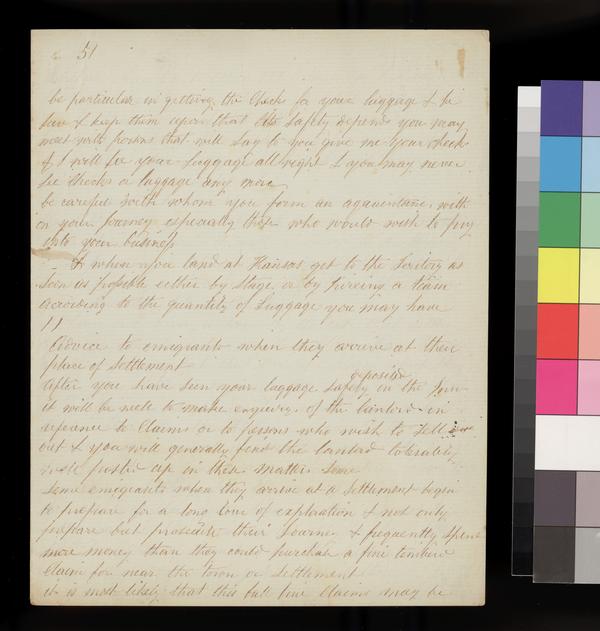 51
be particular in getting the checks for your luggage & be
sure & keep them upon that its safety depends you may
meet with persons that will say to you give me your checks
& I will see your luggage all right & you may never
see checks or luggage any more
be careful with whom you form an aquaintance with
on your journey especially those who would wish to pry
into your business
& when you land at Kansas get to the Teritory as
soon as possible either by Stage or by hireing a team
according to the quantity of Luggage you may have
11
Advice to emigrants when they arrive at their
place of Settlement
deposited
After you have seen your luggage safely in the Inn
it will be well to make enquiries of the lanlord in
referance to Claims or to persons who wish to Sell
out & you will generally find the lanlord tolerably
well posted up in these matters Some
Some emigrants when they arrive at a Settlement begin
to prepare for a long tour of exploration & not only
prepare but prosicute their Journey & frequently spend
more money than they could purchase a fine timbered
Claim for near the town or settlement
it is most likely that this but few Claims may be